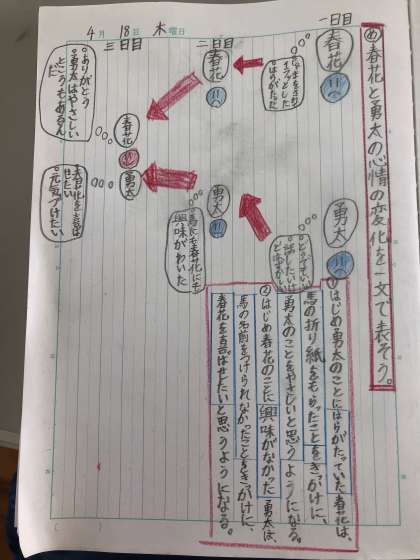 4月 18日 木曜日
㋱春花と勇太の心情の変化を一文で表そう。
一日目
春花
勇太
二日目
春花
勇太
馬にも春花にも
興味がわいた
三日目
春花
勇太
。ありがとう
。勇太はやさしい
ところもあるんだ
。春花を喜ばせたい
。元気づけたい
①はじめ勇太のことにはらがたっていた春花は、
馬の折り紙をもらったことをきっかけに、
勇太のことをやさしいと思うようになる。
②はじめ春花のことに興味がなかった勇太は、
馬の名前をつけられなかったことをきっかけに、
春花を喜ばせたいと思うようになる。